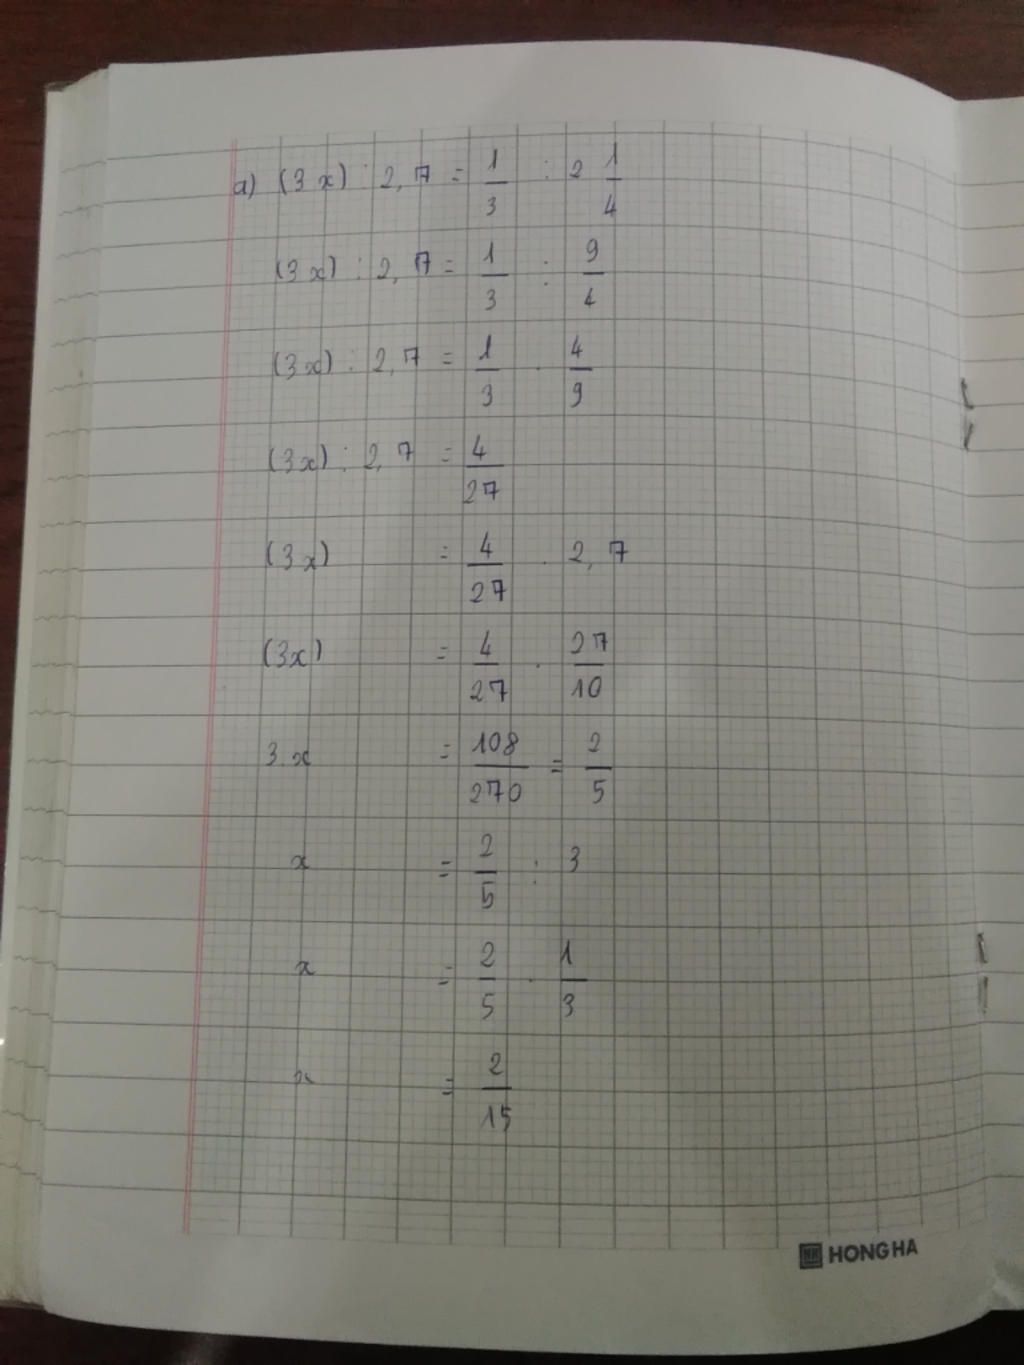 a) (3x) : 2,7 = 1/3 : 2 1/4
(3x) : 2,7 = 1/3 : 9/4
(3x) : 2,7 = 1/3 . 4/9
(3x) : 2,7 = 4/27
(3x) = 4/27 . 2,7
(3x) = 4/27 . 27/10
3.x = 108/270 = 2/5
x = 2/5 : 3
x = 2/5 . 1/3
x = 2/15
HONG HA